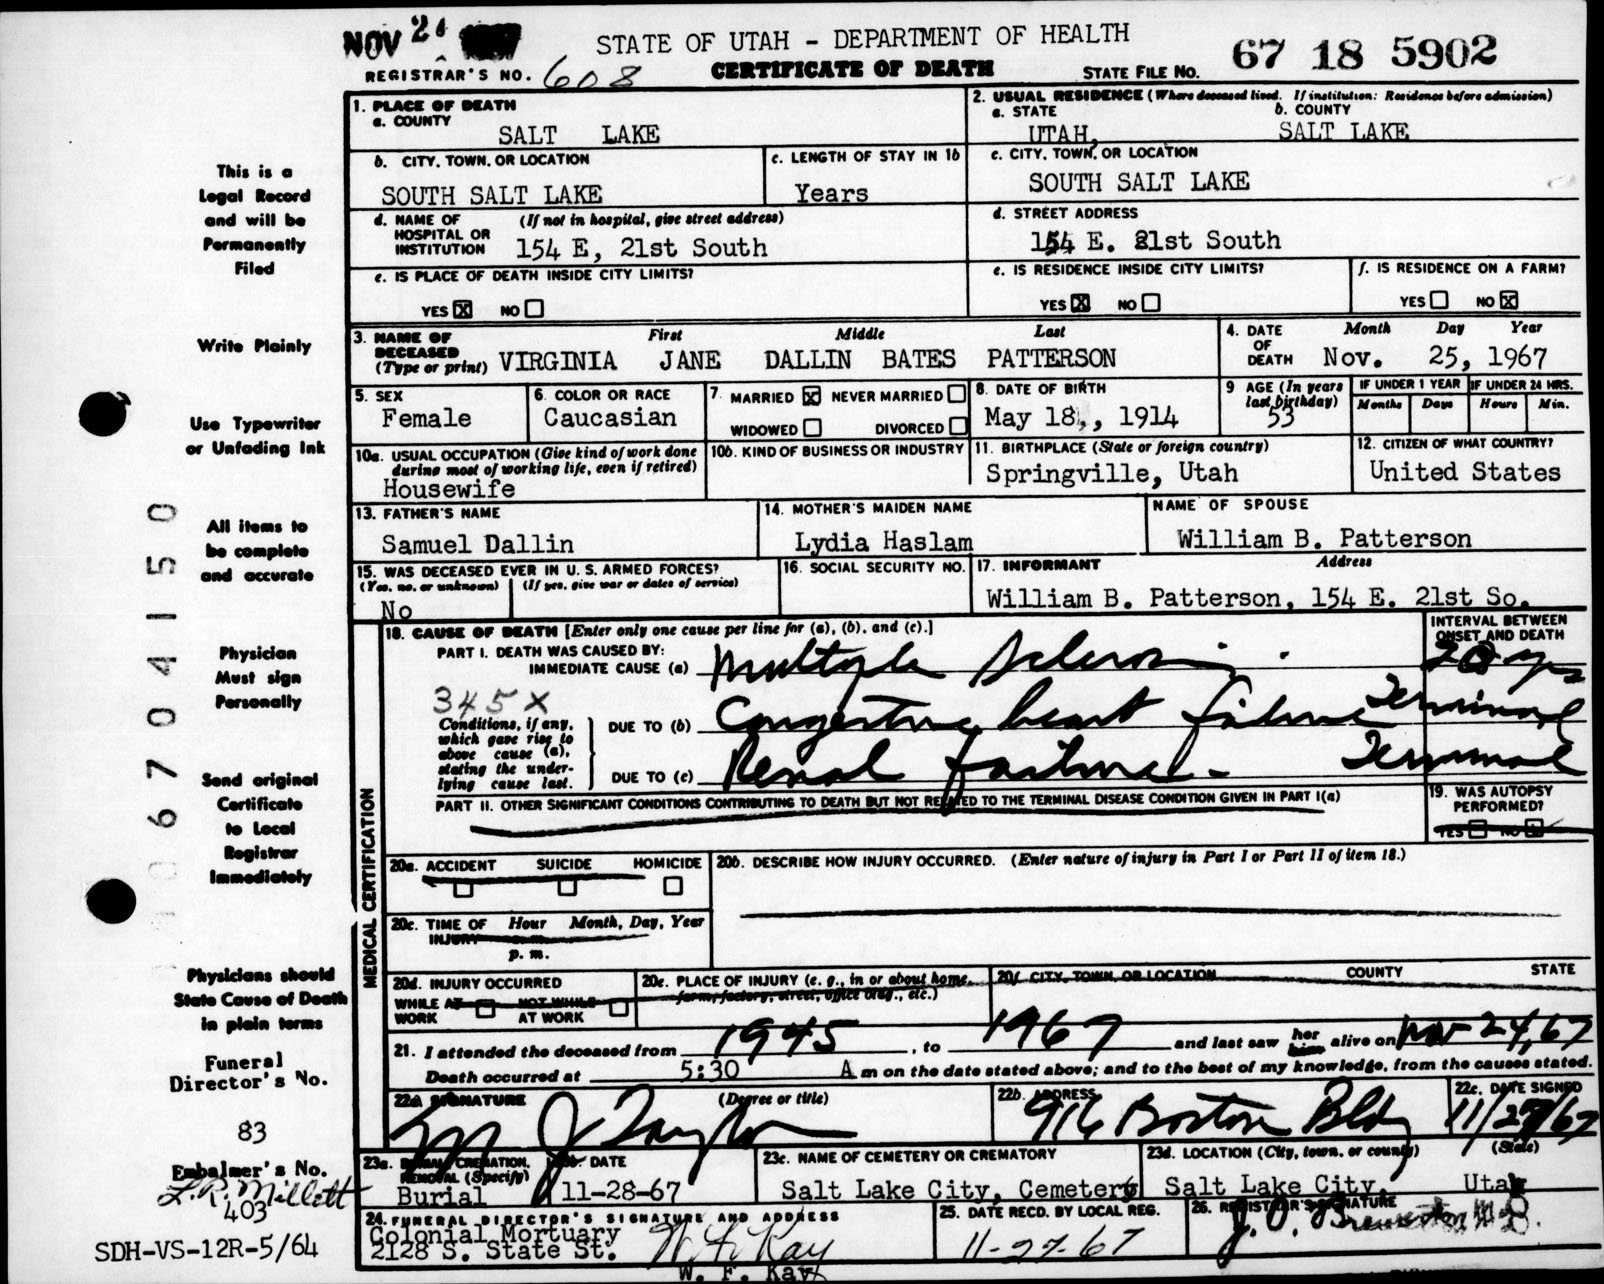 NOV 2
STATE OF UTAH - DEPARTMENT OF HEALTH
67 18 5902
REGISTRAR'S NO. 608
CERTIFICATE OF DEATH
STATE FILE NO.
1. PLACE OF DEATH
a. COUNTY
SALT LAKE
2. USUAL RESIDENCE (Where deceased lived. If institution: Residence before admission)
a. STATE
UTAH,
b. COUNTY
SALT LAKE
b. CITY, TOWN, OR LOCATION
SOUTH SALT LAKE
c. LENGTH OF STAY IN 1b
Years
c. CITY, TOWN, OR LOCATION
SOUTH SALT LAKE
d. NAME OF HOSPITAL OR INSTITUTION (If not in hospital, give street address)
154 E, 21st South
d. STREET ADDRESS
154 E. 21st South
e. IS PLACE OF DEATH INSIDE CITY LIMITS?
YES X NO
e. IS RESIDENCE INSIDE CITY LIMITS?
YES X NO
f. IS RESIDENCE ON A FARM?
YES NO X
3. NAME OF DECEASED (Type or print)
First Middle Last
VIRGINIA JANE DALLIN BATES PATTERSON
4. DATE OF DEATH
Month Day Year
Nov. 25, 1967
5. SEX
Female
6. COLOR OR RACE
Caucasian
7. MARRIED X NEVER MARRIED
WIDOWED DIVORCED
8. DATE OF BIRTH
May 18, 1914
9 AGE (In years last birthday)
53
IF UNDER 1 YEAR
Months Days
IF UNDER 24 HRS.
Hours Min.
10a. USUAL OCCUPATION (Give kind of work done during most of working life, even if retired)
Housewife
10b. KIND OF BUSINESS OR INDUSTRY
11. BIRTHPLACE (State or foreign country)
Springville, Utah
12. CITIZEN OF WHAT COUNTRY?
United States
13. FATHER'S NAME
Samuel Dallin
14. MOTHER'S MAIDEN NAME
Lydia Haslam
NAME OF SPOUSE
William B. Patterson
15. WAS DECEASED EVER IN U. S. ARMED FORCES?
(Yes, no, or unknown) (If yes, give war or dates of service)
No
16. SOCIAL SECURITY NO.
17. INFORMANT Address
William B. Patterson, 154 E. 21st So.
MEDICAL CERTIFICATION
18. CAUSE OF DEATH [Enter only one cause per line for (a), (b), and (c).]
INTERVAL BETWEEN ONSET AND DEATH
PART I. DEATH WAS CAUSED BY:
IMMEDIATE CAUSE (a) Multiple Sclerosis 20 yrs
345X
Conditions, if any, which gave rise to above cause (a), stating the underlying cause last.
DUE TO (b) Congestive heart failure Terminal
DUE TO (c) Renal failure - Terminal
PART II. OTHER SIGNIFICANT CONDITIONS CONTRIBUTING TO DEATH BUT NOT RELATED TO THE TERMINAL DISEASE CONDITION GIVEN IN PART I(a)
19. WAS AUTOPSY PERFORMED?
YES NO
20a. ACCIDENT SUICIDE HOMICIDE
20b. DESCRIBE HOW INJURY OCCURRED. (Enter nature of injury in Part I or Part II of item 18.)
20c. TIME OF INJURY
Hour Month, Day, Year
a. m.
p. m.
20d. INJURY OCCURRED
WHILE AT WORK NOT WHILE AT WORK
20e. PLACE OF INJURY (e. g., in or about home, farm, factory, street, office bldg., etc.)
20f. CITY, TOWN, OR LOCATION COUNTY STATE
21. I attended the deceased from 1945, to 1967 and last saw her him alive on Nov 24, 67
Death occurred at 5:30 A m on the date stated above; and to the best of my knowledge, from the causes stated.
22a SIGNATURE (Degree or title)
J Taylor
22b. ADDRESS
916 Boston Bldg
22c. DATE SIGNED
11/27/67
23a. BURIAL, CREMATION, REMOVAL (Specify)
Burial
23b. DATE
11-28-67
23c. NAME OF CEMETERY OR CREMATORY
Salt Lake City, Cemetery
23d. LOCATION (City, town, or county) (State)
Salt Lake City, Utah
24. FUNERAL DIRECTOR'S SIGNATURE AND ADDRESS
Colonial Mortuary
2128 S. State St.
W. F. Kay
W. F. Kay
25. DATE RECD. BY LOCAL REG.
11-27-67
26. REGISTRAR'S SIGNATURE
J. O.
This is a
Legal Record
and will be
Permanently
Filed
Write Plainly
Use Typewriter
or Unfading Ink
All items to
be complete
and accurate
Physician
Must sign
Personally
Send original
Certificate
to Local
Registrar
Immediately
Physicians should
State Cause of Death
in plain terms
Funeral
Director's No.
83
Embalmer's No.
L. R. Millett
403
SDH-VS-12R-5/64